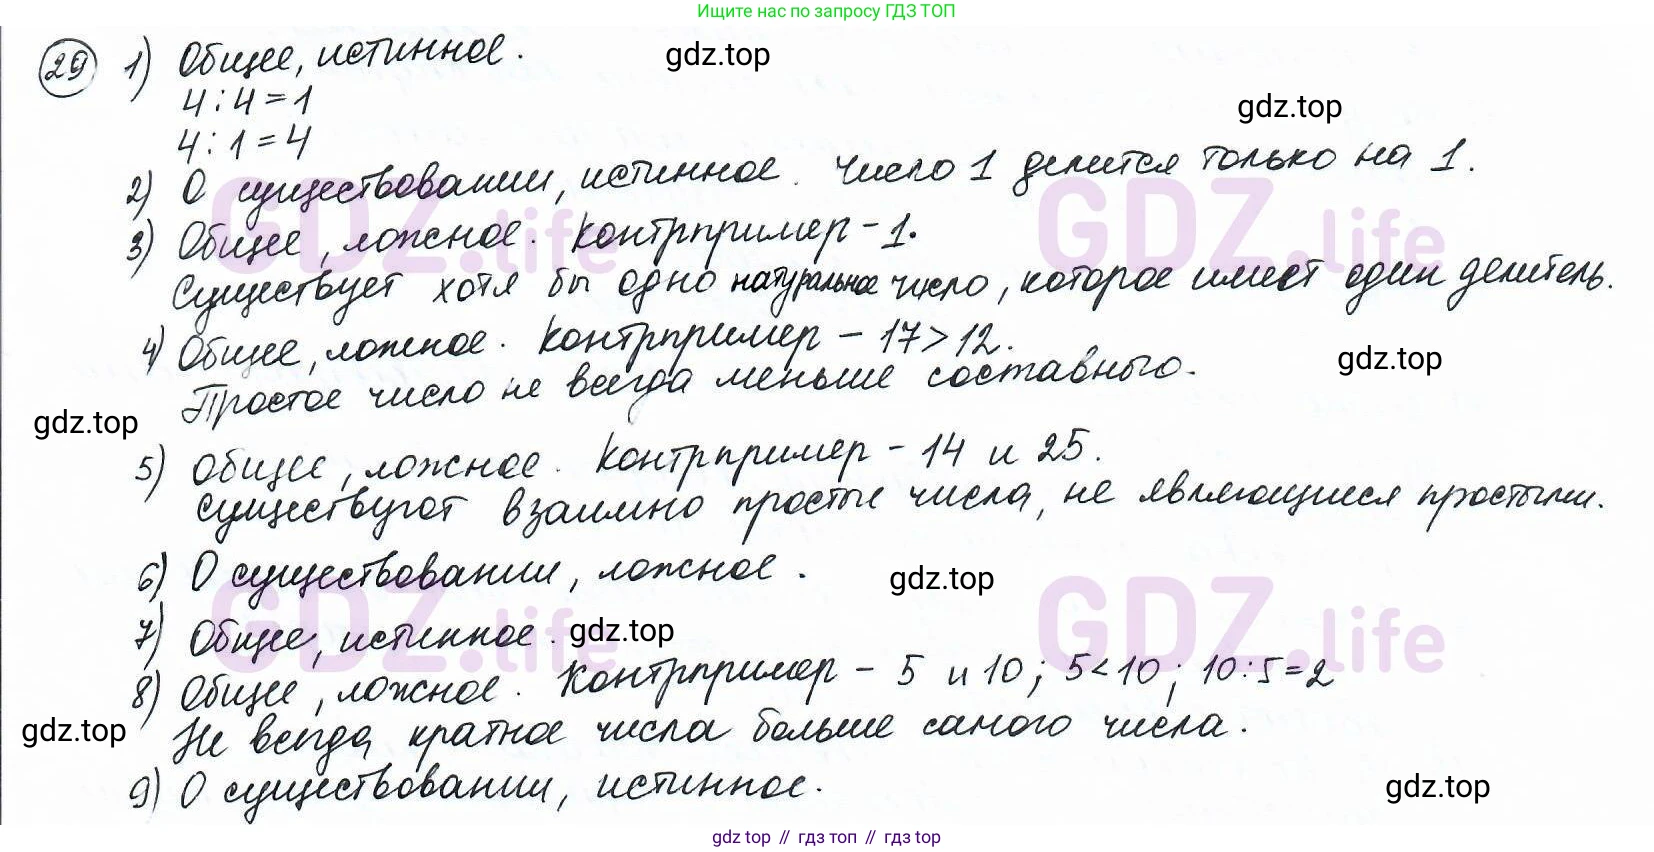 Ищите нас по запросу ГДЗ ТОП
29 1) Общее, истинное.
gdz.top
4 : 4 = 1
gdz.top
4 : 1 = 4
2) О существовании, истинное. Число 1 делится только на 1.
GDZ.life GDZ.life
3) Общее, ложное. Контрпример - 1.
Существует хотя бы одно натуральное число, которое имеет один делитель.
4) Общее, ложное. Контрпример - 17 > 12.
gdz.top
Простое число не всегда меньше составного.
gdz.top
5) Общее, ложное. Контрпример - 14 и 25.
Существуют взаимно простые числа, не являющиеся простыми.
6) О существовании, ложное.
gdz.top
GDZ.life GDZ.life
7) Общее, истинное.
gdz.top
8) Общее, ложное. Контрпример - 5 и 10; 5 < 10; 10 : 5 = 2
Не всегда кратное числа больше самого числа.
gdz.top
9) О существовании, истинное.
gdz.top
gdz.top // гдз топ // gdz top